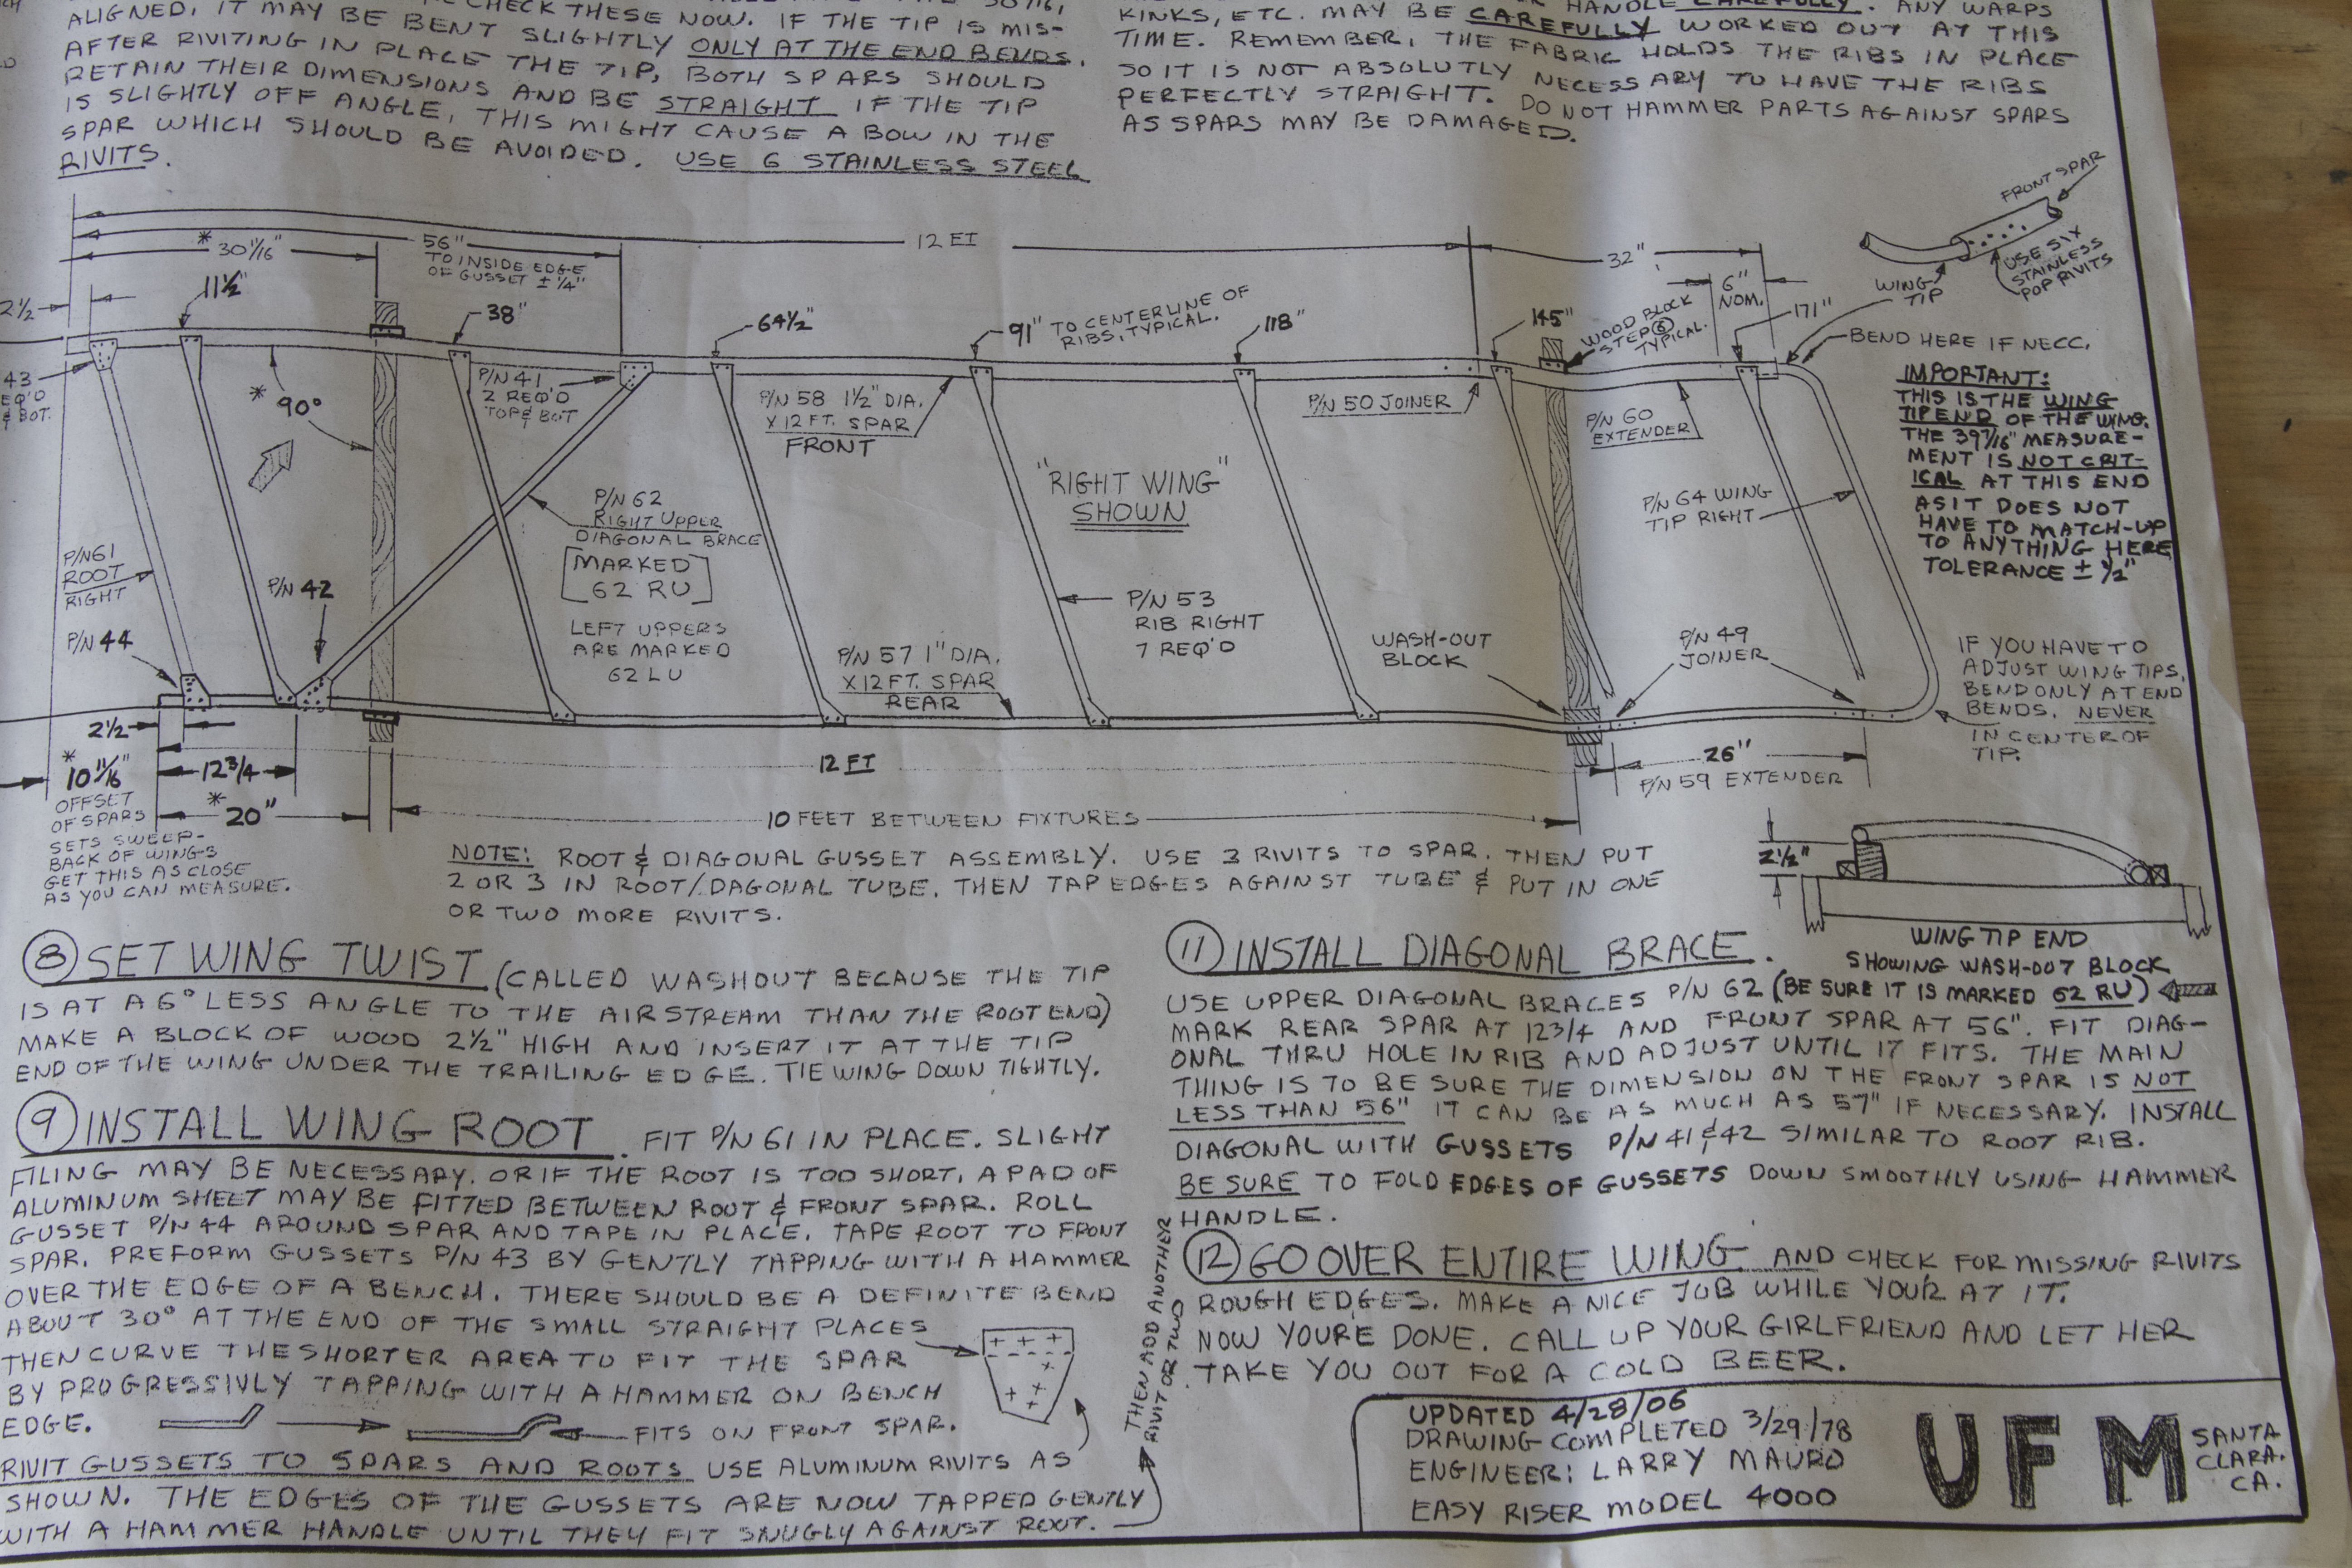 CHECK THESE NOW. IF THE TIP IS MIS-
ALIGNED, IT MAY BE BENT SLIGHTLY ONLY AT THE END BENDS.
AFTER RIVITING IN PLACE THE TIP, BOTH SPARS SHOULD
RETAIN THEIR DIMENSIONS AND BE STRAIGHT IF THE TIP
IS SLIGHTLY OFF ANGLE, THIS MIGHT CAUSE A BOW IN THE
SPAR WHICH SHOULD BE AVOIDED. USE 6 STAINLESS STEEL
RIVITS.
HANDLE CAREFULLY. ANY WARPS
KINKS, ETC. MAY BE CAREFULLY WORKED OUT AT THIS
TIME. REMEMBER, THE FABRIC HOLDS THE RIBS IN PLACE
SO IT IS NOT ABSOLUTLY NECESSARY TO HAVE THE RIBS
PERFECTLY STRAIGHT. DO NOT HAMMER PARTS AGAINST SPARS
AS SPARS MAY BE DAMAGED.
FRONT SPAR
USE SIX
STAINLESS
POP RIVITS
WING
TIP
12 FT
* 30 1/16"
56"
TO INSIDE EDGE
OF GUSSET ± 1/4"
32"
6"
NOM.
2 1/2
11 1/2"
38"
64 1/2"
91" TO CENTERLINE OF
RIBS, TYPICAL.
118"
145"
WOOD BLOCK
STEP 6
TYPICAL.
171"
BEND HERE IF NECC.
43
REQ'D
& BOT.
* 90°
P/N 41
2 REQ'D
TOP & BOT
P/N 58 1 1/2" DIA.
X 12 FT. SPAR
FRONT
P/N 50 JOINER
P/N 60
EXTENDER
IMPORTANT:
THIS IS THE WING
TIP END OF THE WING.
THE 39 7/16" MEASURE-
MENT IS NOT CRIT-
ICAL AT THIS END
AS IT DOES NOT
HAVE TO MATCH-UP
TO ANYTHING HERE
TOLERANCE ± 1/2"
"RIGHT WING"
SHOWN
P/N 62
RIGHT UPPER
DIAGONAL BRACE
[MARKED
62 RU]
LEFT UPPERS
ARE MARKED
62 LU
P/N 64 WING
TIP RIGHT
P/N 61
ROOT
RIGHT
P/N 42
P/N 44
P/N 53
RIB RIGHT
7 REQ'D
P/N 57 1" DIA.
X 12 FT. SPAR
REAR
WASH-OUT
BLOCK
P/N 49
JOINER
IF YOU HAVE TO
ADJUST WING TIPS,
BEND ONLY AT END
BENDS. NEVER
IN CENTER OF
TIP.
2 1/2
* 10 11/16"
OFFSET
OF SPARS
SETS SWEEP-
BACK OF WINGS
GET THIS AS CLOSE
AS YOU CAN MEASURE.
12 3/4
* 20"
12 FT
26"
P/N 59 EXTENDER
10 FEET BETWEEN FIXTURES
NOTE: ROOT & DIAGONAL GUSSET ASSEMBLY. USE 3 RIVITS TO SPAR. THEN PUT
2 OR 3 IN ROOT/DAGONAL TUBE. THEN TAP EDGES AGAINST TUBE & PUT IN ONE
OR TWO MORE RIVITS.
2 1/2"
WING TIP END
SHOWING WASH-OUT BLOCK
8 SET WING TWIST (CALLED WASHOUT BECAUSE THE TIP
IS AT A 6° LESS ANGLE TO THE AIRSTREAM THAN THE ROOT END)
MAKE A BLOCK OF WOOD 2 1/2" HIGH AND INSERT IT AT THE TIP
END OF THE WING UNDER THE TRAILING EDGE. TIE WING DOWN TIGHTLY.
9 INSTALL WING ROOT. FIT P/N 61 IN PLACE. SLIGHT
FILING MAY BE NECESSARY. OR IF THE ROOT IS TOO SHORT, A PAD OF
ALUMINUM SHEET MAY BE FITTED BETWEEN ROOT & FRONT SPAR. ROLL
GUSSET P/N 44 AROUND SPAR AND TAPE IN PLACE. TAPE ROOT TO FRONT
SPAR. PREFORM GUSSETS P/N 43 BY GENTLY TAPPING WITH A HAMMER
OVER THE EDGE OF A BENCH. THERE SHOULD BE A DEFINITE BEND
ABOUT 30° AT THE END OF THE SMALL STRAIGHT PLACES
THEN CURVE THE SHORTER AREA TO FIT THE SPAR
BY PROGRESSIVLY TAPPING WITH A HAMMER ON BENCH
EDGE.
FITS ON FRONT SPAR.
RIVIT GUSSETS TO SPARS AND ROOTS USE ALUMINUM RIVITS AS
SHOWN. THE EDGES OF THE GUSSETS ARE NOW TAPPED GENTLY
WITH A HAMMER HANDLE UNTIL THEY FIT SNUGLY AGAINST ROOT.
THEN ADD ANOTHER
RIVIT OR TWO
11 INSTALL DIAGONAL BRACE.
USE UPPER DIAGONAL BRACES P/N 62 (BE SURE IT IS MARKED 62 RU)
MARK REAR SPAR AT 12 3/4 AND FRONT SPAR AT 56". FIT DIAG-
ONAL THRU HOLE IN RIB AND ADJUST UNTIL IT FITS. THE MAIN
THING IS TO BE SURE THE DIMENSION ON THE FRONT SPAR IS NOT
LESS THAN 56" IT CAN BE AS MUCH AS 57" IF NECESSARY. INSTALL
DIAGONAL WITH GUSSETS P/N 41 & 42 SIMILAR TO ROOT RIB.
BE SURE TO FOLD EDGES OF GUSSETS DOWN SMOOTHLY USING HAMMER
HANDLE.
12 GO OVER ENTIRE WING AND CHECK FOR MISSING RIVITS
ROUGH EDGES. MAKE A NICE JOB WHILE YOU'R AT IT.
NOW YOURE DONE. CALL UP YOUR GIRLFRIEND AND LET HER
TAKE YOU OUT FOR A COLD BEER.
UPDATED 4/28/06
DRAWING COMPLETED 3/29/78
ENGINEER: LARRY MAURO
EASY RISER MODEL 4000
UFM
SANTA
CLARA.
CA.